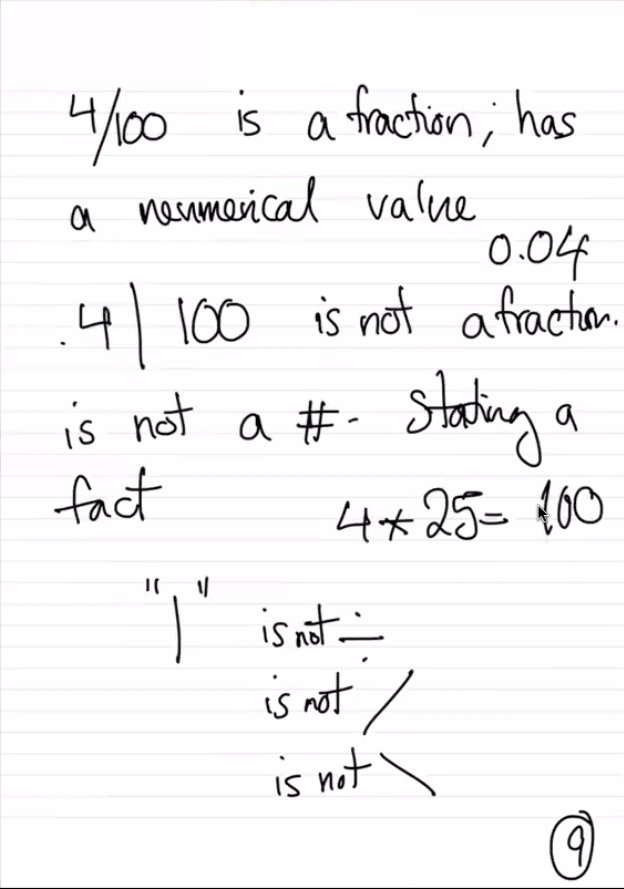 4/100 is a fraction; has
a neumerical value
0.04
.4 | 100 is not a fraction.
is not a #. Stating a
fact 4 * 25 = 100
"|" is not ÷
is not /
is not \
9